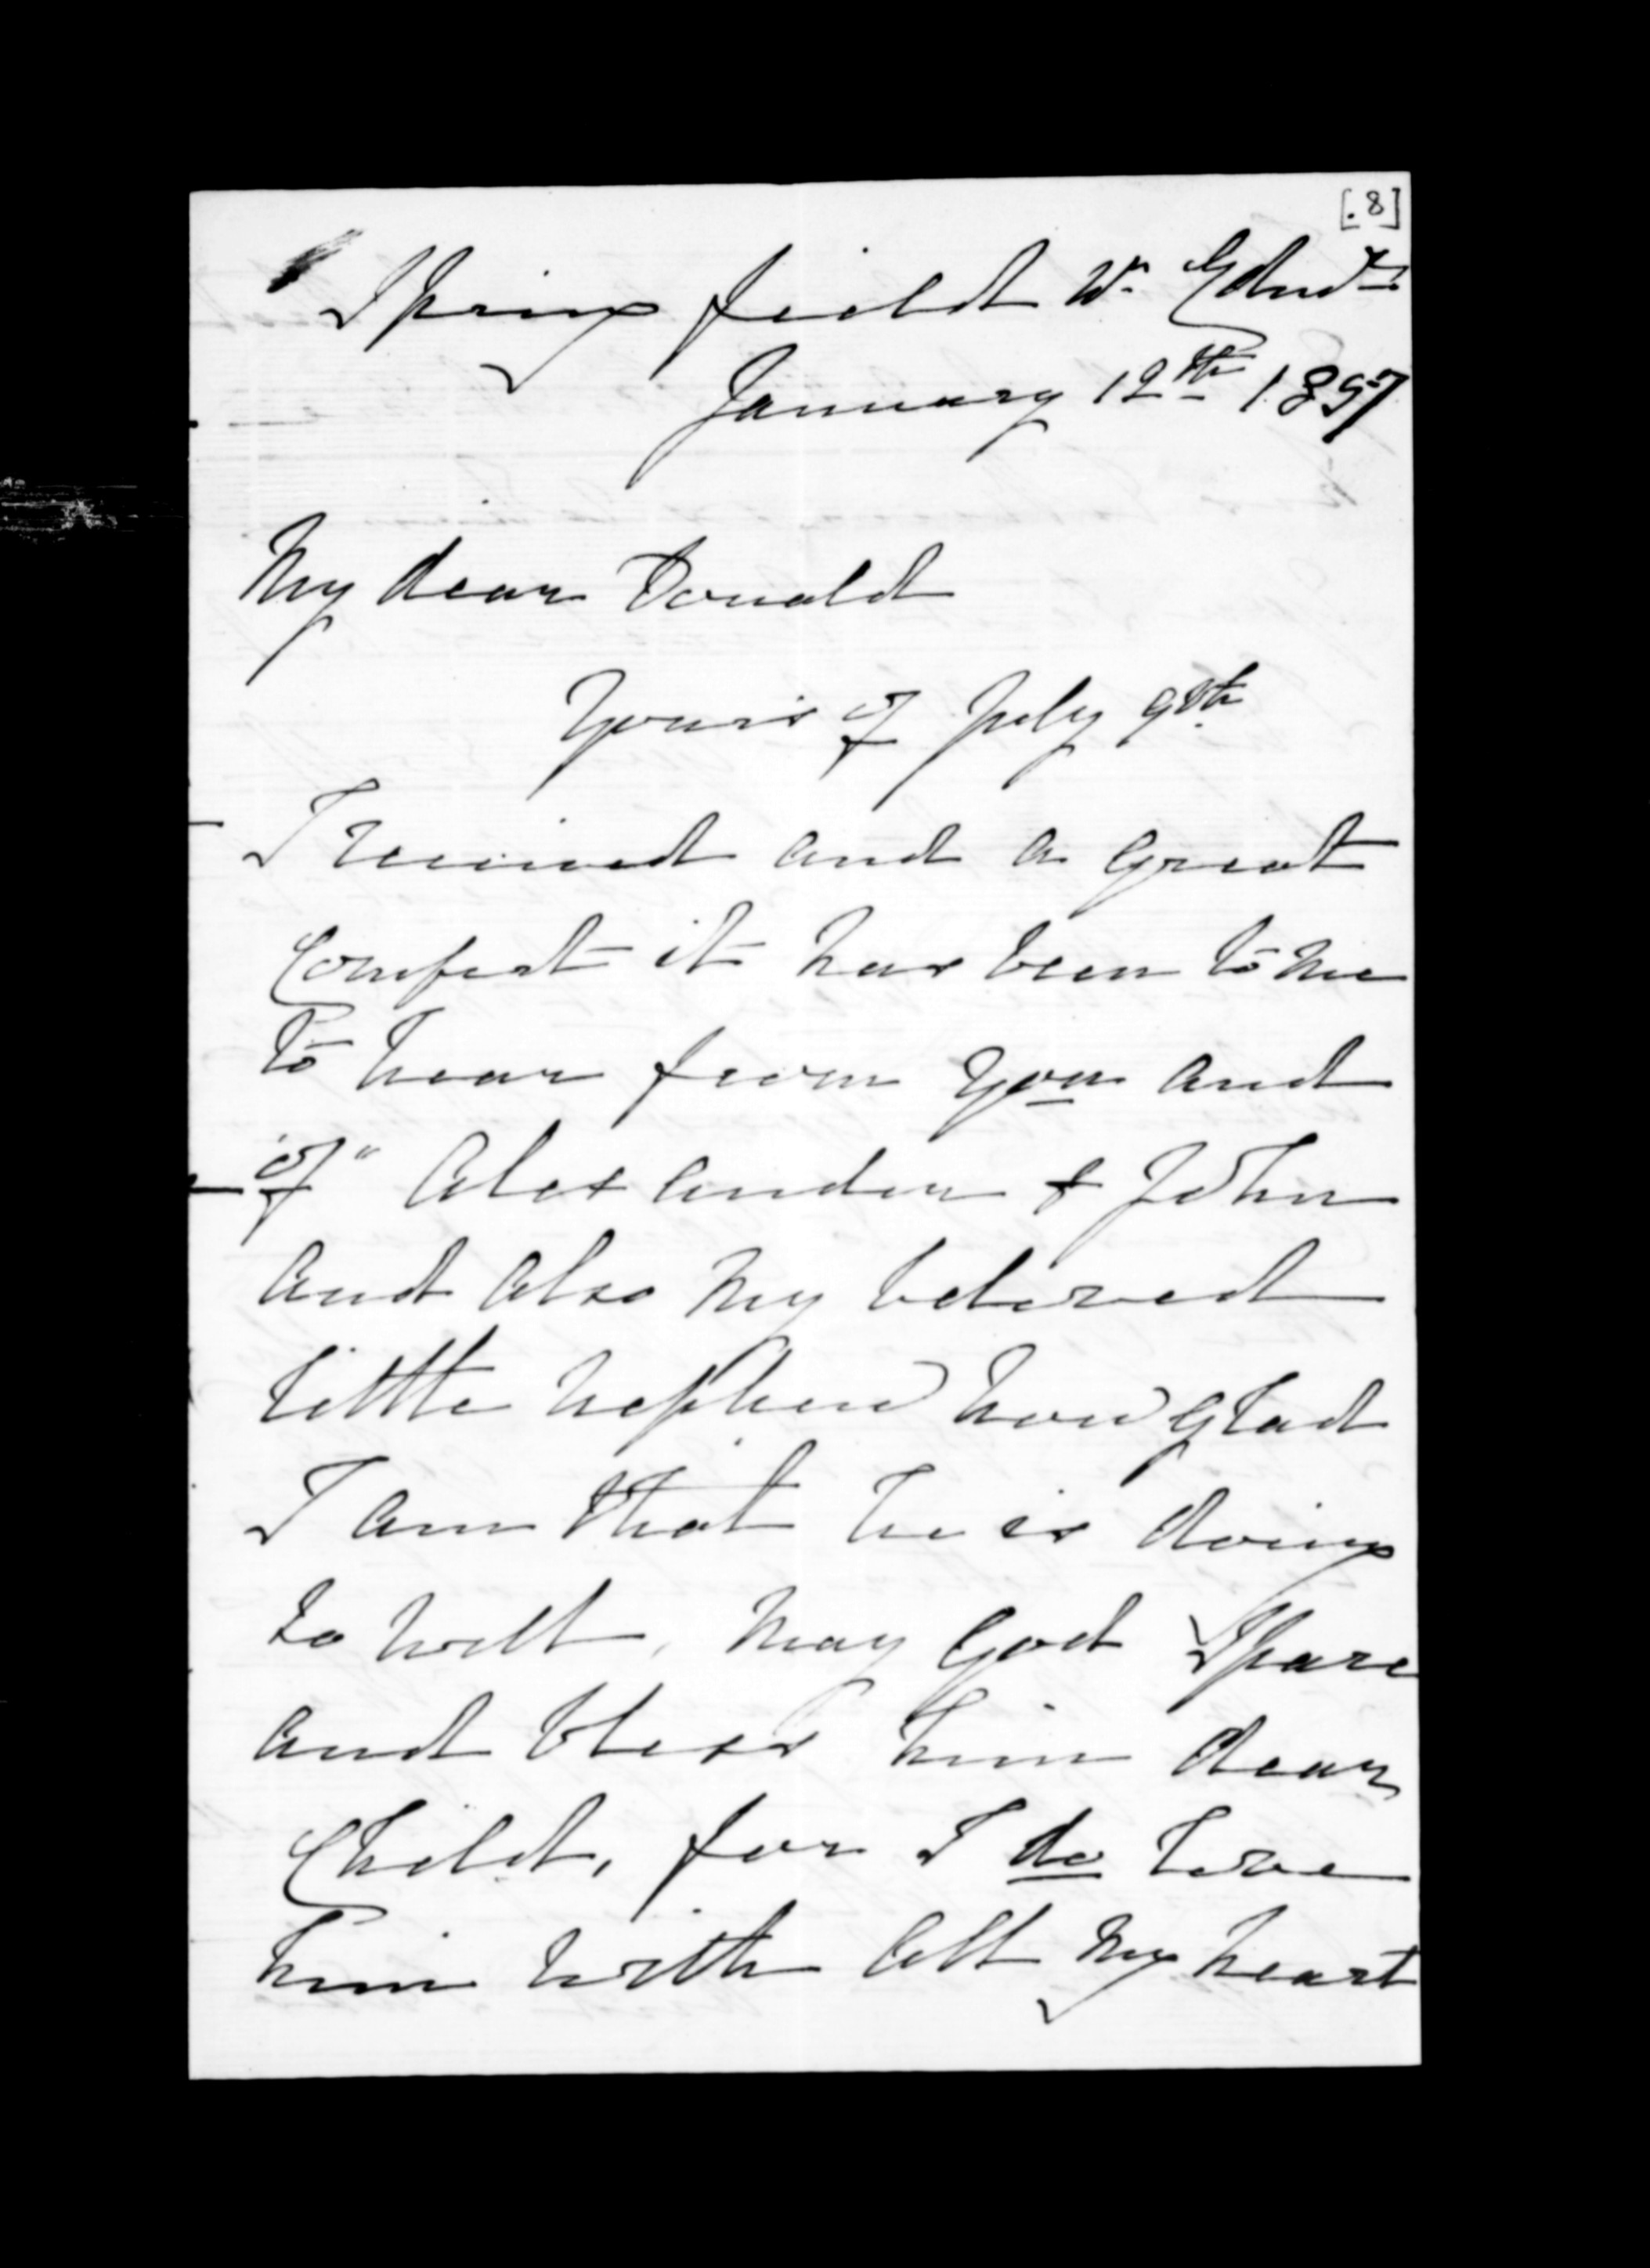 [.8]
Spring field Nr Edinr
January 12th 1857
My dear Donald
Yours of July 9th
I received and a great
Comfort it has been to me
to hear from you and
"of" Alexander & John
and also my beloved
little nephew how glad
I am that he is doing
so well, may God Spare
and bless him dear
Child, for I do love
him with all my heart